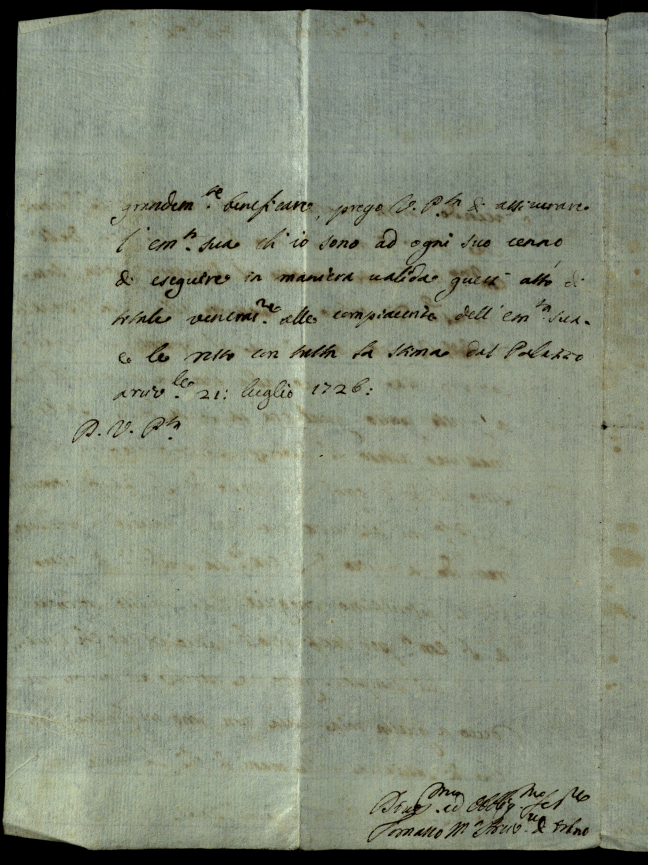 grandem.te beneficare, prego V. P.tà di assicurare
l'em.za sua ch'io sono ad ogni suo cenno
di eseguire in maniera valida quest'atto di
totale veneraz.ne alle compiacenze dell'em.za sua.
e le resto con tutta la stima dal Palazzo
arciv.le 21: luglio 1726:
D. V. P.tà
ed Obblig.mo
Tomaso M.a Arciv.o di